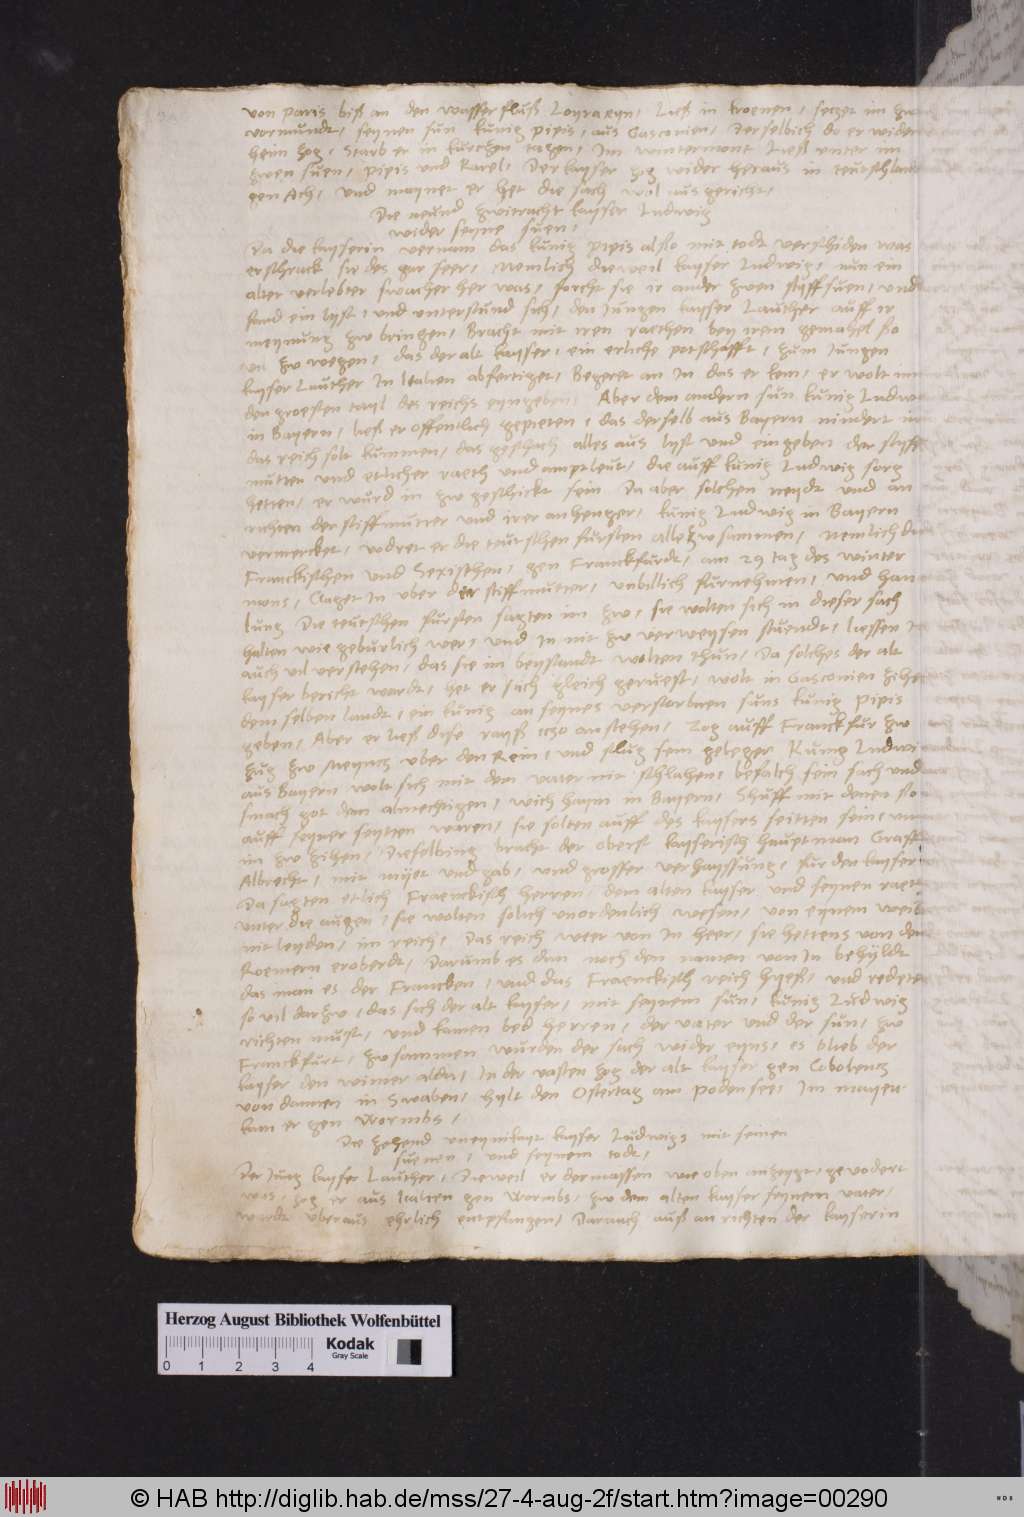 von Paris biß an den wasserfluß Loyra eyn, Ließ in kroenen, setzet im zw
vormundt, seynen sun kunig pipis, aus Gasconien, Derselbich do er wider
heim zog, Starb er in kurczen tagen, Im wintermont Ließ unter im
zwen suen, pipis und Karel, Der kayser zog wider heraus in teutschland
gen Ach, und maynet er het die sach wol ausgericht,
Die neund zwitracht kayser Ludwig
wider seyne suen,
Da die kayserin vernam das kunig pipis also mit todt verschiden was
erschrack sie des gar seer, Nemlich dieweil kayser Ludwig, nun ein
alter verlebter swacher her was, forcht sie ir ander zwen styff suen, und
fand ein lyst, und unterstund sich, den Jungen kayser Lauther auff ir
meynung zw bringen, Bracht mit iren raethen bey irem gemahel so
vil zw wegen, das der alt kayser, ein erliche potschafft, zum Jungen
kayser Lauther In Italien abfertiget, Begeret an In das er kem, er wolt im
den groesten tayl des reichs eyngeben, Aber dem andern sun kunig Ludwi
in Bayern, ließ er offentlich gepieten, das derselb aus Bayern nindert in
das reich solt kummen, das geschach alles aus lyst und eingeben der styff
mutter und etlicher raeth und amptleut, die auff kunig Ludwig sorg
hetten, er wurd in zw geschickt sein Da aber solchen neydt und an
richten der stiffmutter und irer anhenger, kunig Ludwig in Bayern
vermercket, vodret er die teutschen fursten alle zwsammen, nemlich die
Franckischen und Sexischen, gen Franckfurdt, am 29 tag des winter
mons, Claget In uber der stiffmutter, unbillich furnehmen, und han
lung Die teutschen fursten sagten im zw, sie wolten sich in dieser sach
halten wie geburlich wer, und In nit zw verweysen stuendt, liessen
auch vil verstehen, das sie im beystandt wolten thun, Da solches der alt
kayser bericht wardt, het er sich gleich geruest, wolt in Gasconien zihen
demselben landt, ein kunig an seynes verstorbnen suns kunig Pipis
geben, Aber er ließ dise rayß anstehen, Zog auff Franckfur zw
zug zw Meyncz uber den Rein, und slug sein geleger Kunig Ludwi
aus Bayern wolt sich mit dem vater nit schlahen, befalch sein sach und
smach got dem almechtigen, wich haym in Bayern, Shuff mit denen so
auff seyner seytten waren, sie solten auff des kaysers seitten sein,
im zw zihen, Dieselbing bracht der oberst kayserisch hauptman Graff
Albrecht, mit myet und gab, und grosser verhayssung, fur den kayser
Da sagten etlich Fraenckisch herren, dem alten kayser und seynen raeth
unter die augen, sie wolten solich unordenlich wesen, von eynem weib
nit leyden, im reich, Das reich weer von In heer, sie hettens von den
Roemern eroberdt, Darumb es dan noch den namen von In behyldt
das man es der Francken, und das Fraenckisch reich hyeß, und redeten
so vil darzw, das sich der alt kayser, mit seynem sun, kunig Ludwig
richten must, und kamen bed herren, der vater und der sun, zw
Franckfurt, zwsammen wurden der sach wider eyns, es blieb der
kayser den winter alda, In der vasten zog der alt kayser gen Cobolencz
von dannen in Swaben, hylt den Ostertag am Podensee, Im mayen
kam er gen Wormbs,
Die zehend uneynikayt kayser Ludwigs mit seinen
suenen, und seynem todt,
Der Jung kayser Lauther, Dieweil er dermassen wie oben anzeygt, gevodert
was, zog er aus Italien gen Wormbs, zw dem alten kayser seynem vater,
wardt uberaus ehrlich entpfangen, Darnach auß anrichten der kayserin
Herzog August Bibliothek Wolfenbüttel
Kodak
Gray Scale
0 1 2 3 4
© HAB http://diglib.hab.de/mss/27-4-aug-2f/start.htm?image=00290